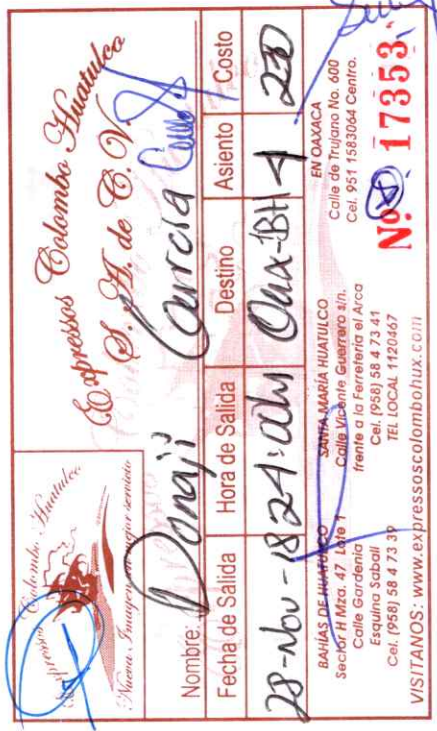 Expressos Colombo Huatulco
Nueva Imagen mejor servicio
Expressos Colombo Huatulco
S. A. de C. V.
Nombre Donaji García
Fecha de Salida Hora de Salida Destino Asiento Costo
28-Nov-18 24:00hrs Oax-BH 4 230
BAHÍAS DE HUATULCO
Sector H Mza. 47 Lote 1
Calle Gardenia
Esquina Sabalí
Cel. (958) 58 4 73 39
SANTA MARÍA HUATULCO
Calle Vicente Guerrero s/n.
frente a la Ferretería el Arca
Cel. (958) 58 4 73 41
TEL LOCAL 1120467
EN OAXACA
Calle de Trujano No. 600
Cel. 951 1583064 Centro.
VISITANOS: www.expressoscolombohux.com
Nº 17353